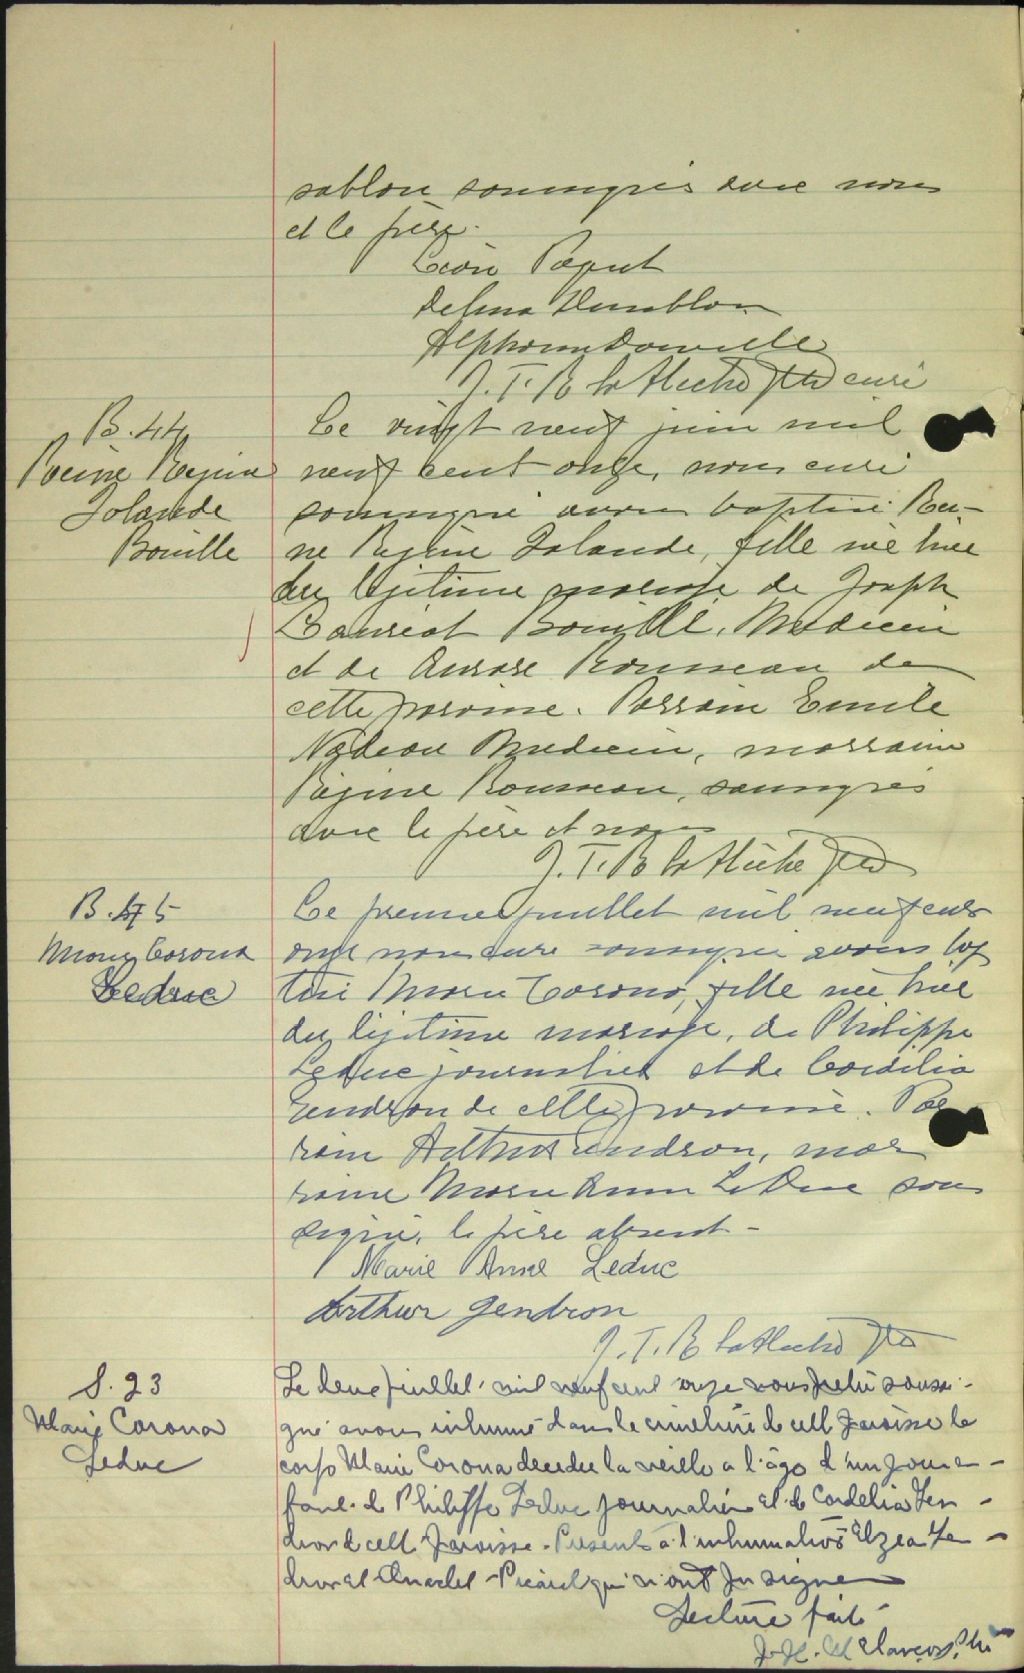 sablon soussignés avec nous
et le père.
Léon Paquet
Delima Dumblon
Alphonse Danville
J. T. B. LaFlèche Ptre curé
B. 44
Reine Régina
Iolande
Bouillé
Le vingt neuf juin mil
neuf cent onze, nous curé
soussigné avons baptisé Rei-
ne Régina Iolande, fille née hier
du légitime mariage de Joseph
Lauréat Bouillé, Medecin
et de Aurore Rousseau de
cette paroisse. Parrain Emile
Nadeau Medecin, marraine
Régine Rousseau, soussignés
avec le père et nous
J. T. B. LaFlèche Ptre
B. 45
Marie Corona
Leduc
Le premier juillet mil neuf cent
onze nous curé soussigné avons bap
tisé Marie Corona, fille née hier
du légitime mariage, de Philippe
Leduc journalier et de Cordélia
Gendron de cette paroisse. Par
rain Arthur Gendron, mar
raine Marie Anne LeDuc sous
signés, le père absent -
Marie Anne Leduc
Arthur Gendron
J. T. B. LaFlèche Ptre
S. 23
Marie Corona
Leduc
Le deux juillet mil neuf cent onze nous prêtre soussi-
gné avons inhumé dans le cimetière de cette paroisse le
corps Marie Corona decedée la veille a l'âge d'un jour en-
fant de Philippe Leduc journalier et de Cordelia Gen-
dron de cette paroisse. Présents à l'inhumation Elzear Ge-
dron et Anaclet Picard qui n'ont pu signer
Lecture faite